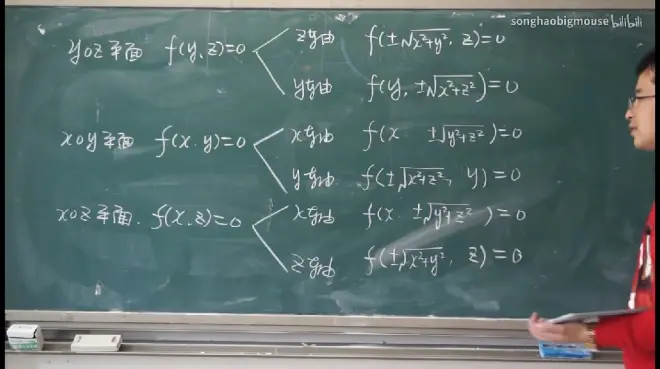 songhaobigmouse bilibili
yoz平面 f(y,z)=0 z轴 f(±√x²+y², z)=0
y轴 f(y, ±√x²+z²)=0
xoy平面 f(x.y)=0 x轴 f(x. ±√y²+z²)=0
y轴 f(±√x²+z², y)=0
xoz平面. f(x,z)=0 x轴 f(x. ±√y²+z²)=0
z轴 f(±√x²+y², z)=0